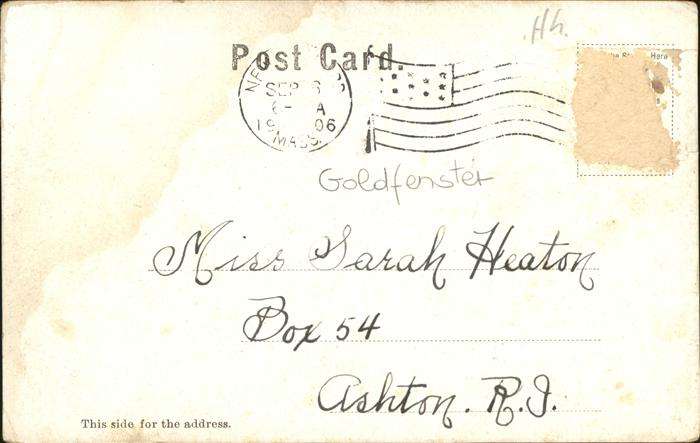 Hh.
Post Card.
SEP 6
6- A
1906
MASS.
Goldfenster
Miss Sarah Heaton
Box 54
Ashton. R.I.
This side for the address.